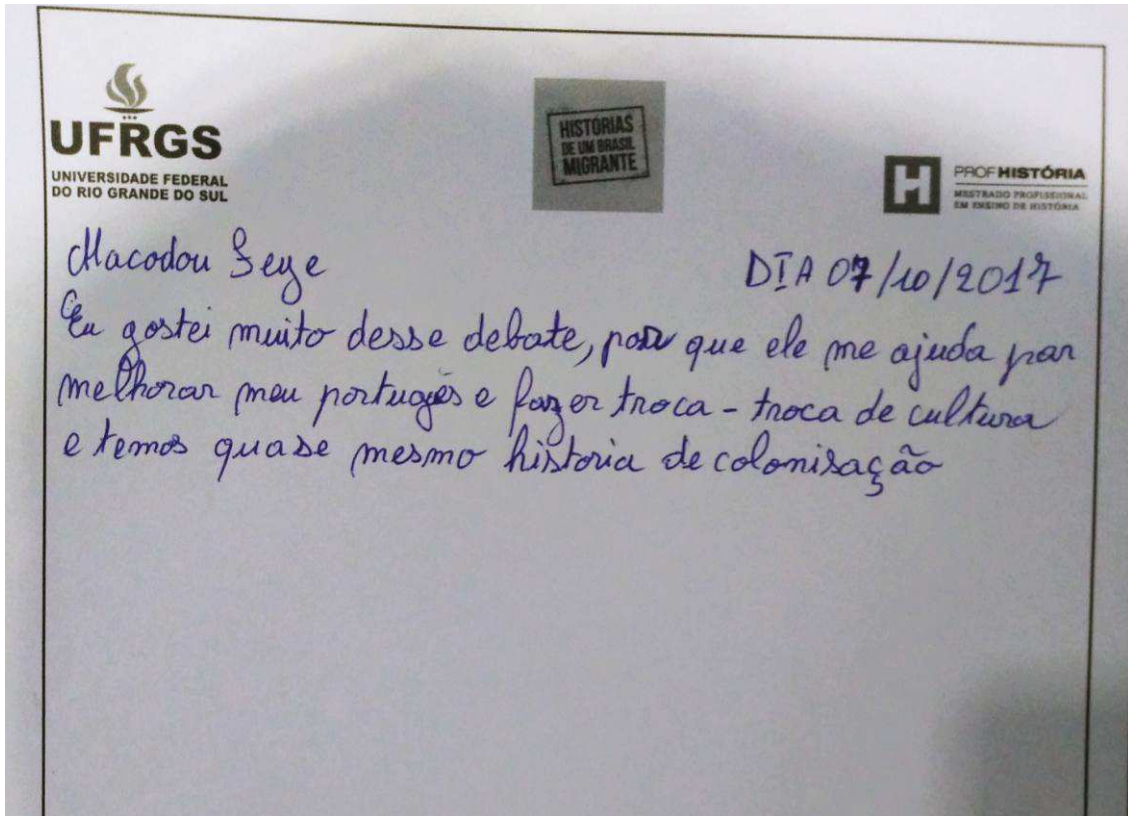 UFRGS
UNIVERSIDADE FEDERAL
DO RIO GRANDE DO SUL
HISTÓRIAS
DE UM BRASIL
MIGRANTE
H
PROFHISTÓRIA
MESTRADO PROFISSIONAL
EM ENSINO DE HISTÓRIA
Macodou Seye
DIA 07/10/2017
Eu gostei muito desse debate, por que ele me ajuda par
melhorar meu portugês e fazer troca-troca de cultura
e temos quase mesmo historia de colonisação